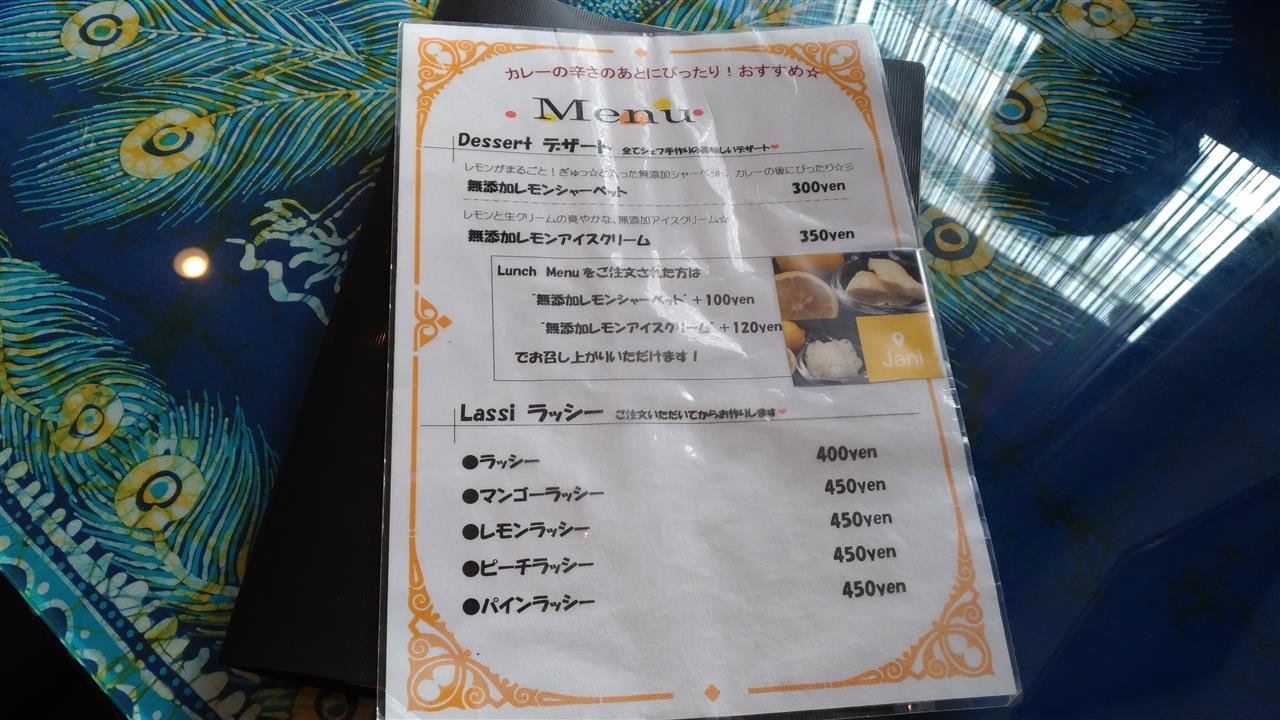 カレーの辛さのあとにぴったり！おすすめ☆
Menu
Dessert デザート 全てシェフ手作りの美味しいデザート❤
レモンがまるごと！ぎゅっ☆と入った無添加シャーベット。カレーの後にぴったり☆彡
無添加レモンシャーベット 300yen
レモンと生クリームの爽やかな、無添加アイスクリーム☆
無添加レモンアイスクリーム 350yen
Lunch Menuをご注文された方は
"無添加レモンシャーベット"＋100yen
"無添加レモンアイスクリーム"＋120yen
でお召し上がりいただけます！
Jani
Lassi ラッシー ご注文いただいてからお作りします❤
●ラッシー 400yen
●マンゴーラッシー 450yen
●レモンラッシー 450yen
●ピーチラッシー 450yen
●パインラッシー 450yen